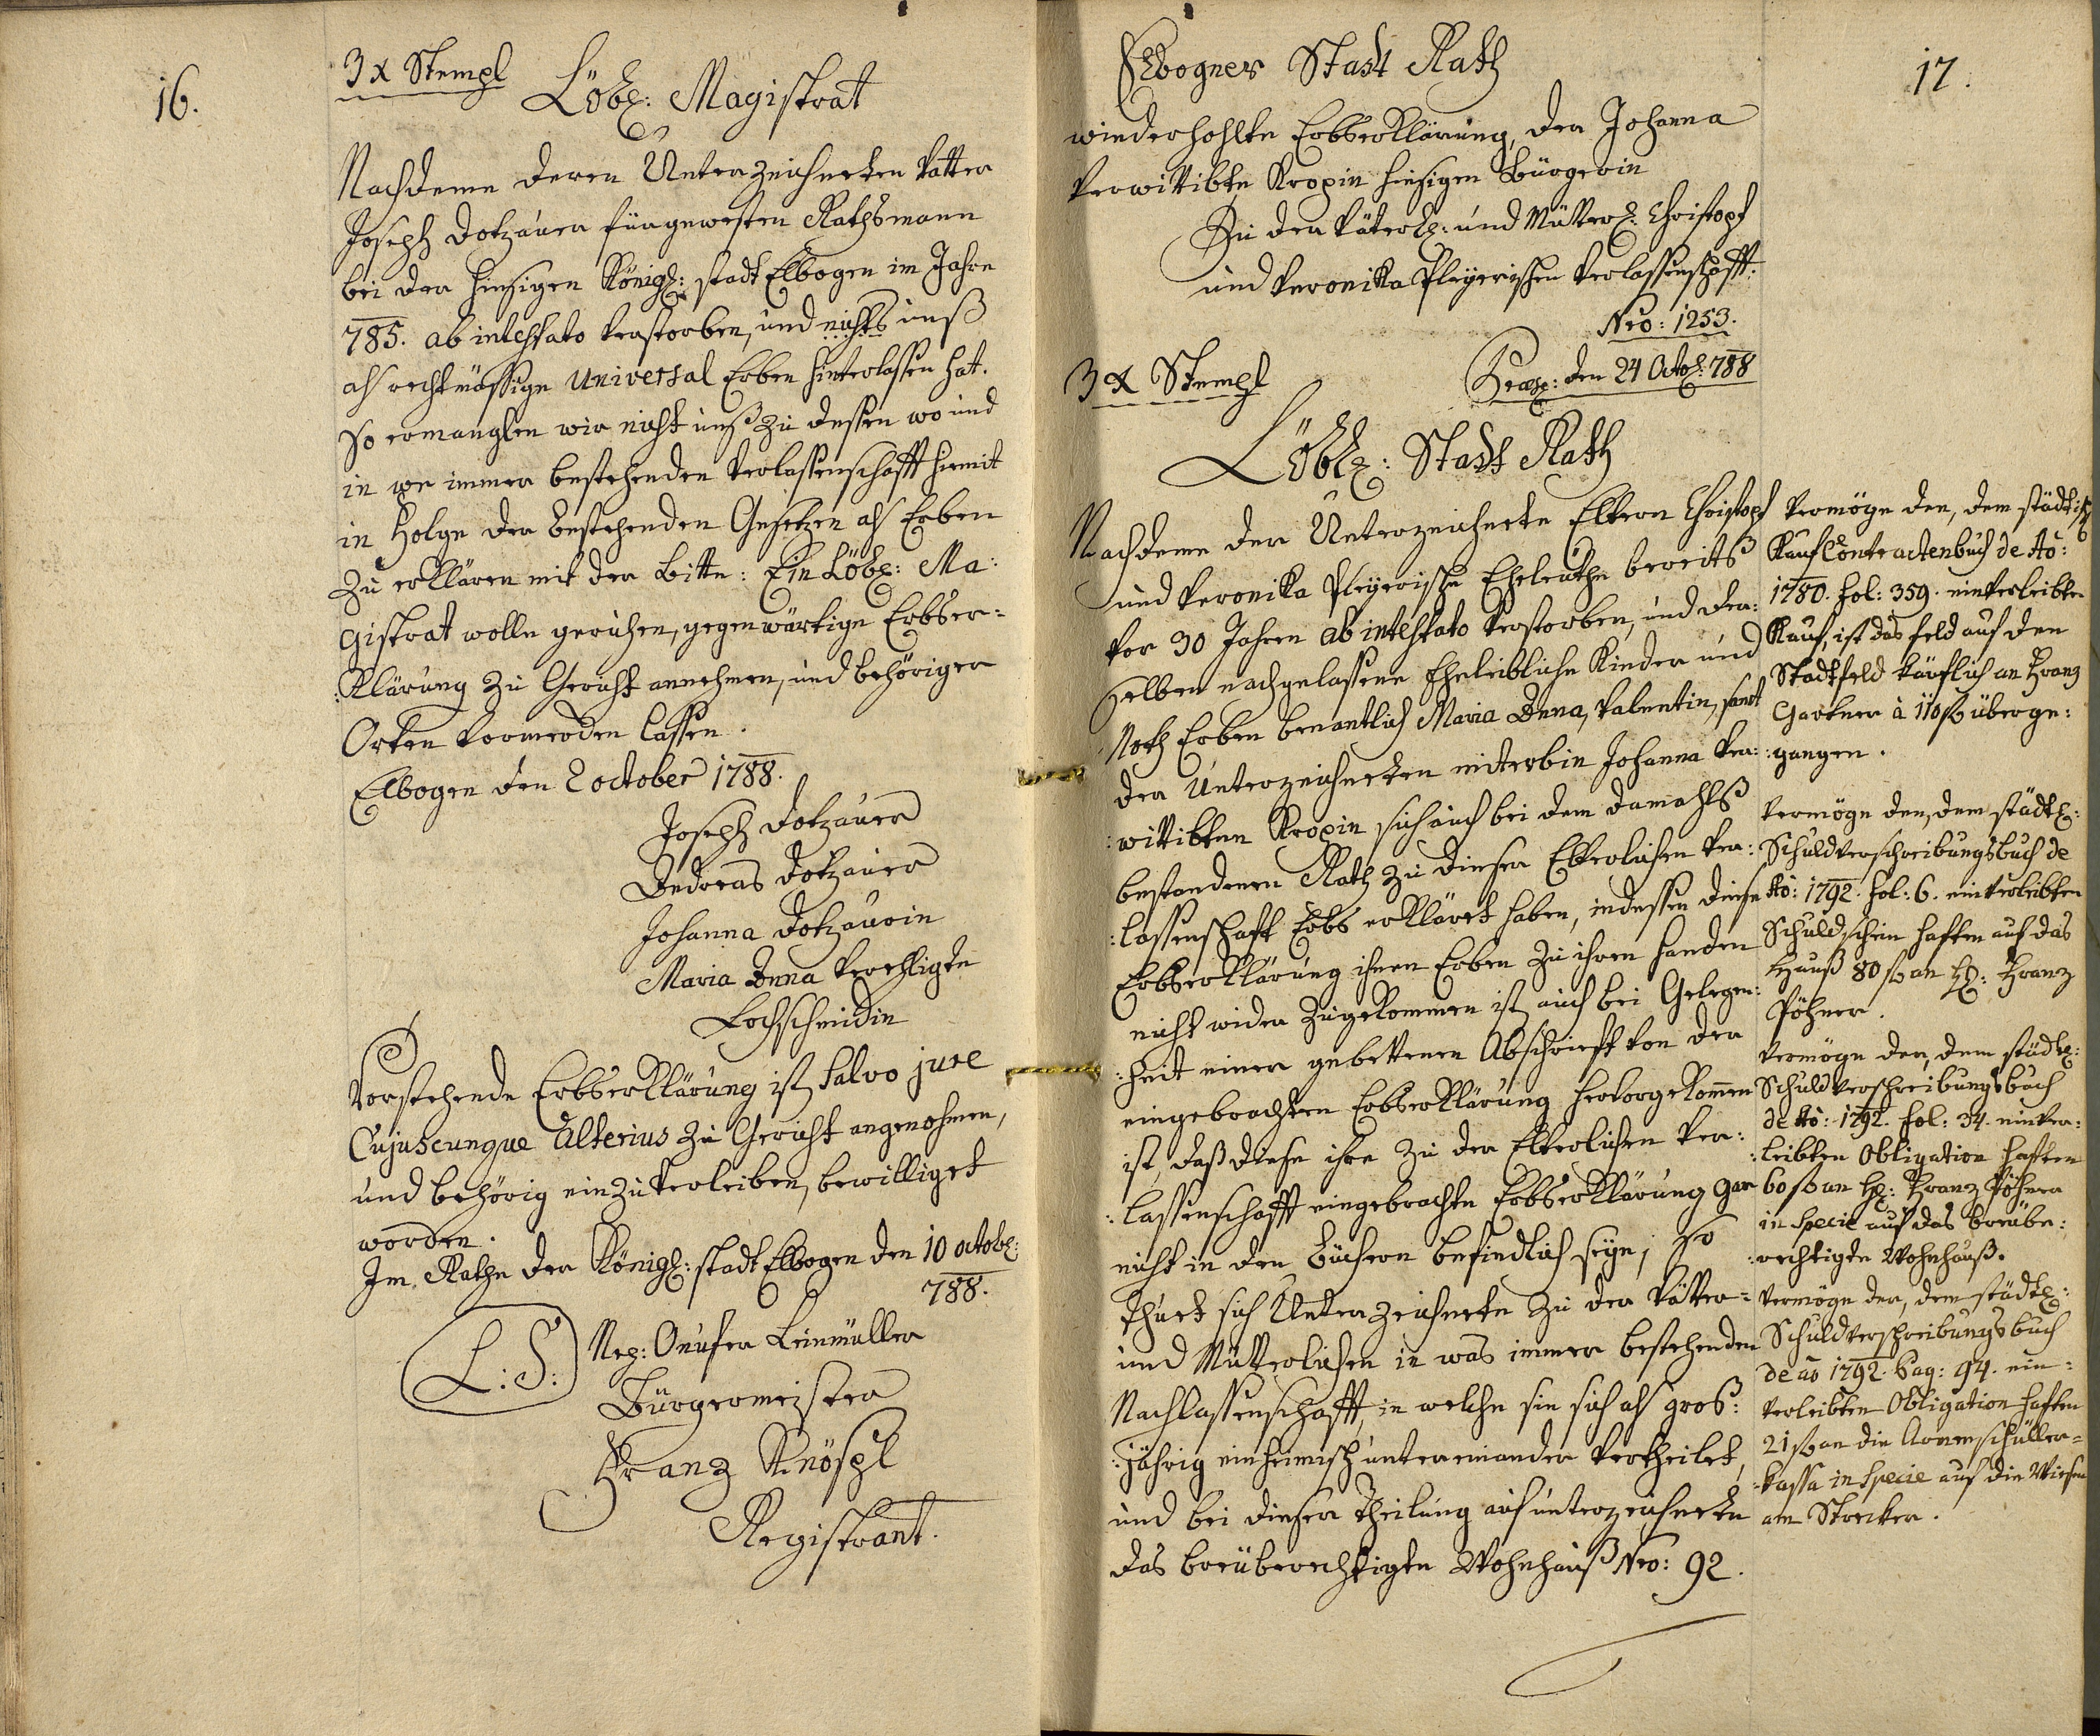 16.
3 x Stempl
Löbl: Magistrat
Nachdeme deren Unterzeichneten Vatter
Joseph Dotzauer füngewesten Rathsmann
bei der hiesigen Königl: stadt Elbogen im Jahre
785. ab intestato verstorben, und nichts unß
als rechtmässige Universal Erben hinterlassen hat.
So ermanglen wir nicht unß zu dessen wo und
in we immer bestehenden Verlassenschafft hiemit
in Folge der bestehenden Gesetzen als Erben
zu erklären mit der Bitte: Ein Löbl: Ma:
gistrat wolle geruhen, gegenwärtige Erbser=
:klärung zu Gericht annehmen, und behöriger
Orten vormerden lassen.
Elbogen den 2 october 1788.
Joseph Dotzauer
Andreas Dotzauer
Johanna Dotzauerin
Maria Anna Verehligte
Lochschmidin
Vorstehende Erbserklärung ist salvo jure
Cujuscunque Alterius zu Gericht angenohmen,
und behörig einzuverleiben, bewilliget
worden.
Im Rathe der Königl: stadt Elbogen den 10 octobr:
788.
L: S: Nep: Onufer Leinmüller
Bürgermeister
Franz Knöspl
Registrant.
17.
Elbogner Stadt Rath
wiederhohlte Erbserklärung, der Johanna
Verwittibte Kropin hiesigen Bürgerin
Zu der Väterl: und Mütterl: Christoph
und Veronika Pleyerischen Verlassenschafft.
Nro: 1253.
3 x Stempl
den 24 Octo: 788
Löbl: Stadt Rath
Nachdeme der Unterzeichnete Eltern Christoph
und Veronika Pleyerische Eheleuthe bereits
vor 30 Jahren ab intestato verstorben, und der:
selben nachgelassene Eheleibliche Kinder und
Noth Erben benantlich Maria Anna, Valentin, samt
der Unterzeichneten miterbin Johanna ver:
:wittibten Kropin sich auch bei dem damahls
bestandenen Rath zu dieser Elterlichen Ver:
:lassenschaft Erbs erkläret haben, indessen diese
Erbserklärung ihnen Erben zu ihren handen
nicht wider zugekommen ist, auch bei Gelegen:
:heit einer gebettenen Abschrieft von der
eingebrachten Erbserklärung hervorgekomen
ist, daß diese ihre zu der Elterlichen Ver:
:lassenschafft eingebrachte Erbserklärung gar
nicht in den Büchern befindlich seyn; so
thuet sich Unterzeichnete zu der Vätter=
und Mütterlichen in was immer bestehenden
Nachlassenschafft, in welche sie sich als gros:
:jährig einheimisch untereinander vertheilet,
und bei dieser Theilung auf unterzeichnete
das breüberechtigte Wohnhauß Nro: 92.
Vermöge den, dem städtisch
Kauf Contractenbuch de Ao:
1780. fol: 359. einverleibten
Kauf, ist das feld auf den
Stadtfeld käuflich an Franz
Gartner à 110 fl überge:
:gangen.
Vermöge den, dem städtl:
Schuldverschreibungsbuch de
Ao: 1792. fol: 6. einverleibten
Schuldschein haften auf das
Hauß 80 fl an H: Franz
Pöhner.
Vermöge der, dem städtl:
Schuldverschreibungsbuch
de Ao: 1792. fol: 34. einver:
:leibten Obligation haften
60 fl an H: Franz Pöhner
in specie auf das breübe:
:rechtigte Wohnhauß.
Vermöge der, dem städtl:
Schuldverschreibungsbuch
de ao 1792. Pag: 94. ein=
verleibten Obligation haften
21 fl an die Armenschüller=
=kassa in specie auf die Wiesen
am Strecker.